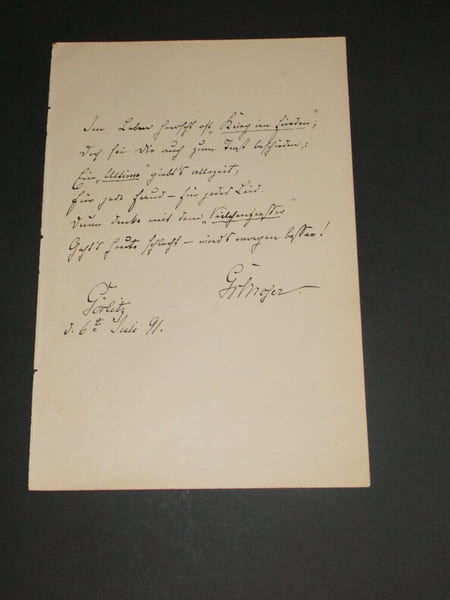 Im Leben herrscht oft „Krieg im Frieden“;
Doch sei Dir auch zum Trost beschieden:
Ein „Ultimo“ giebt's allezeit,
Für jede Freud – für jedes Leid.
Drum denke mit dem „Veilchenfresser“
Geht's heute schlecht – wird's morgen besser!
GvMoser.
Görlitz
d. 6t Juli 91.